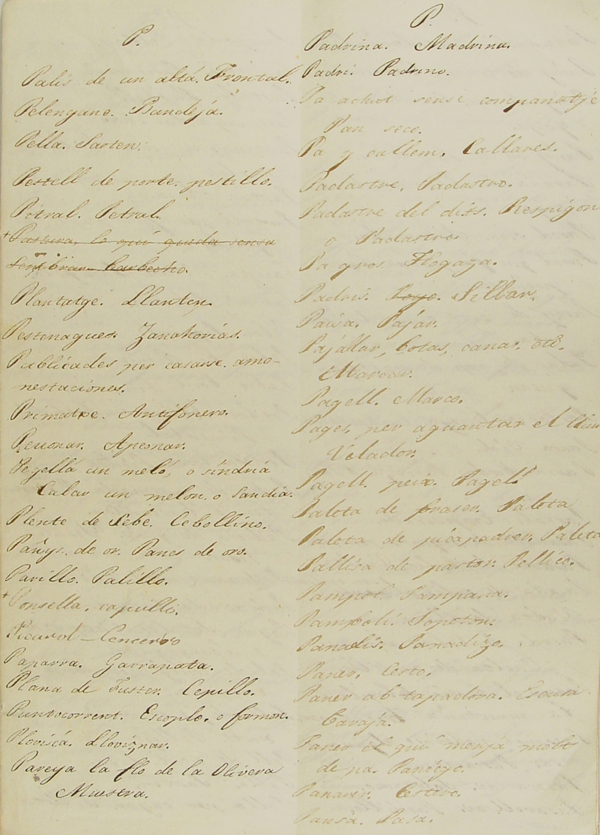 P.
Palis de un altá. Frontal.
Pelengane. Bandeja.
Pella. Sarten.
Pestell de porte. pestillo.
Pétral. Petral.
Pastura, lo qui queda sense
sembrar. Barbecho.
Plantatge. Llanten.
Pestenagues. Zanahorias.
Publicades per casarse. amo-
nestaciones.
Primatxe. Antifonero.
Peuonar. Apeonar.
Pejella un meló, o síndria
Calar un melon, o Sandia.
Plente de Sebe. Cebollino.
Pañys de or. Panes de oro.
Parillo. Palillo.
Ponsella. capullo.
Picarol - Cencerro
Paparra. Garrapata.
Plana de Fuster. Cepillo.
Puntocorrent. Escoplo, o formon.
Plovisca. Lloviznar.
Pareya la flo de la Olivera
Muestra.
P.
Padrina. Madrina.
Padri. Padrino.
Pa axiut sense companatje
Pan seco.
Pa y callem. Callares.
Padastre, Padastro.
Padastre del dits. Respigon
o Padastro.
Pa gros Hogaza.
Silbar.
Paisa. Pajar.
Pajallar, botas, canas. etc.
Marcar.
Pagell. Marco.
Pages, per aguantar el llum
Velador.
Pagell. peix. Pagell
Paleta de braser. Paleta
Paleta de picapadrer. Paleta
Pallisa de partor. Pellico.
Pampol. Pampana.
Pambolí Sopoton.
Panadis. Panadizo.
Paner. Cesto.
Paner ab tapadora. Escusa
baraja.
Paner el qui menja molt
de pa. Paniego.
Panaver. Cestero.
Pansa. Pasa.